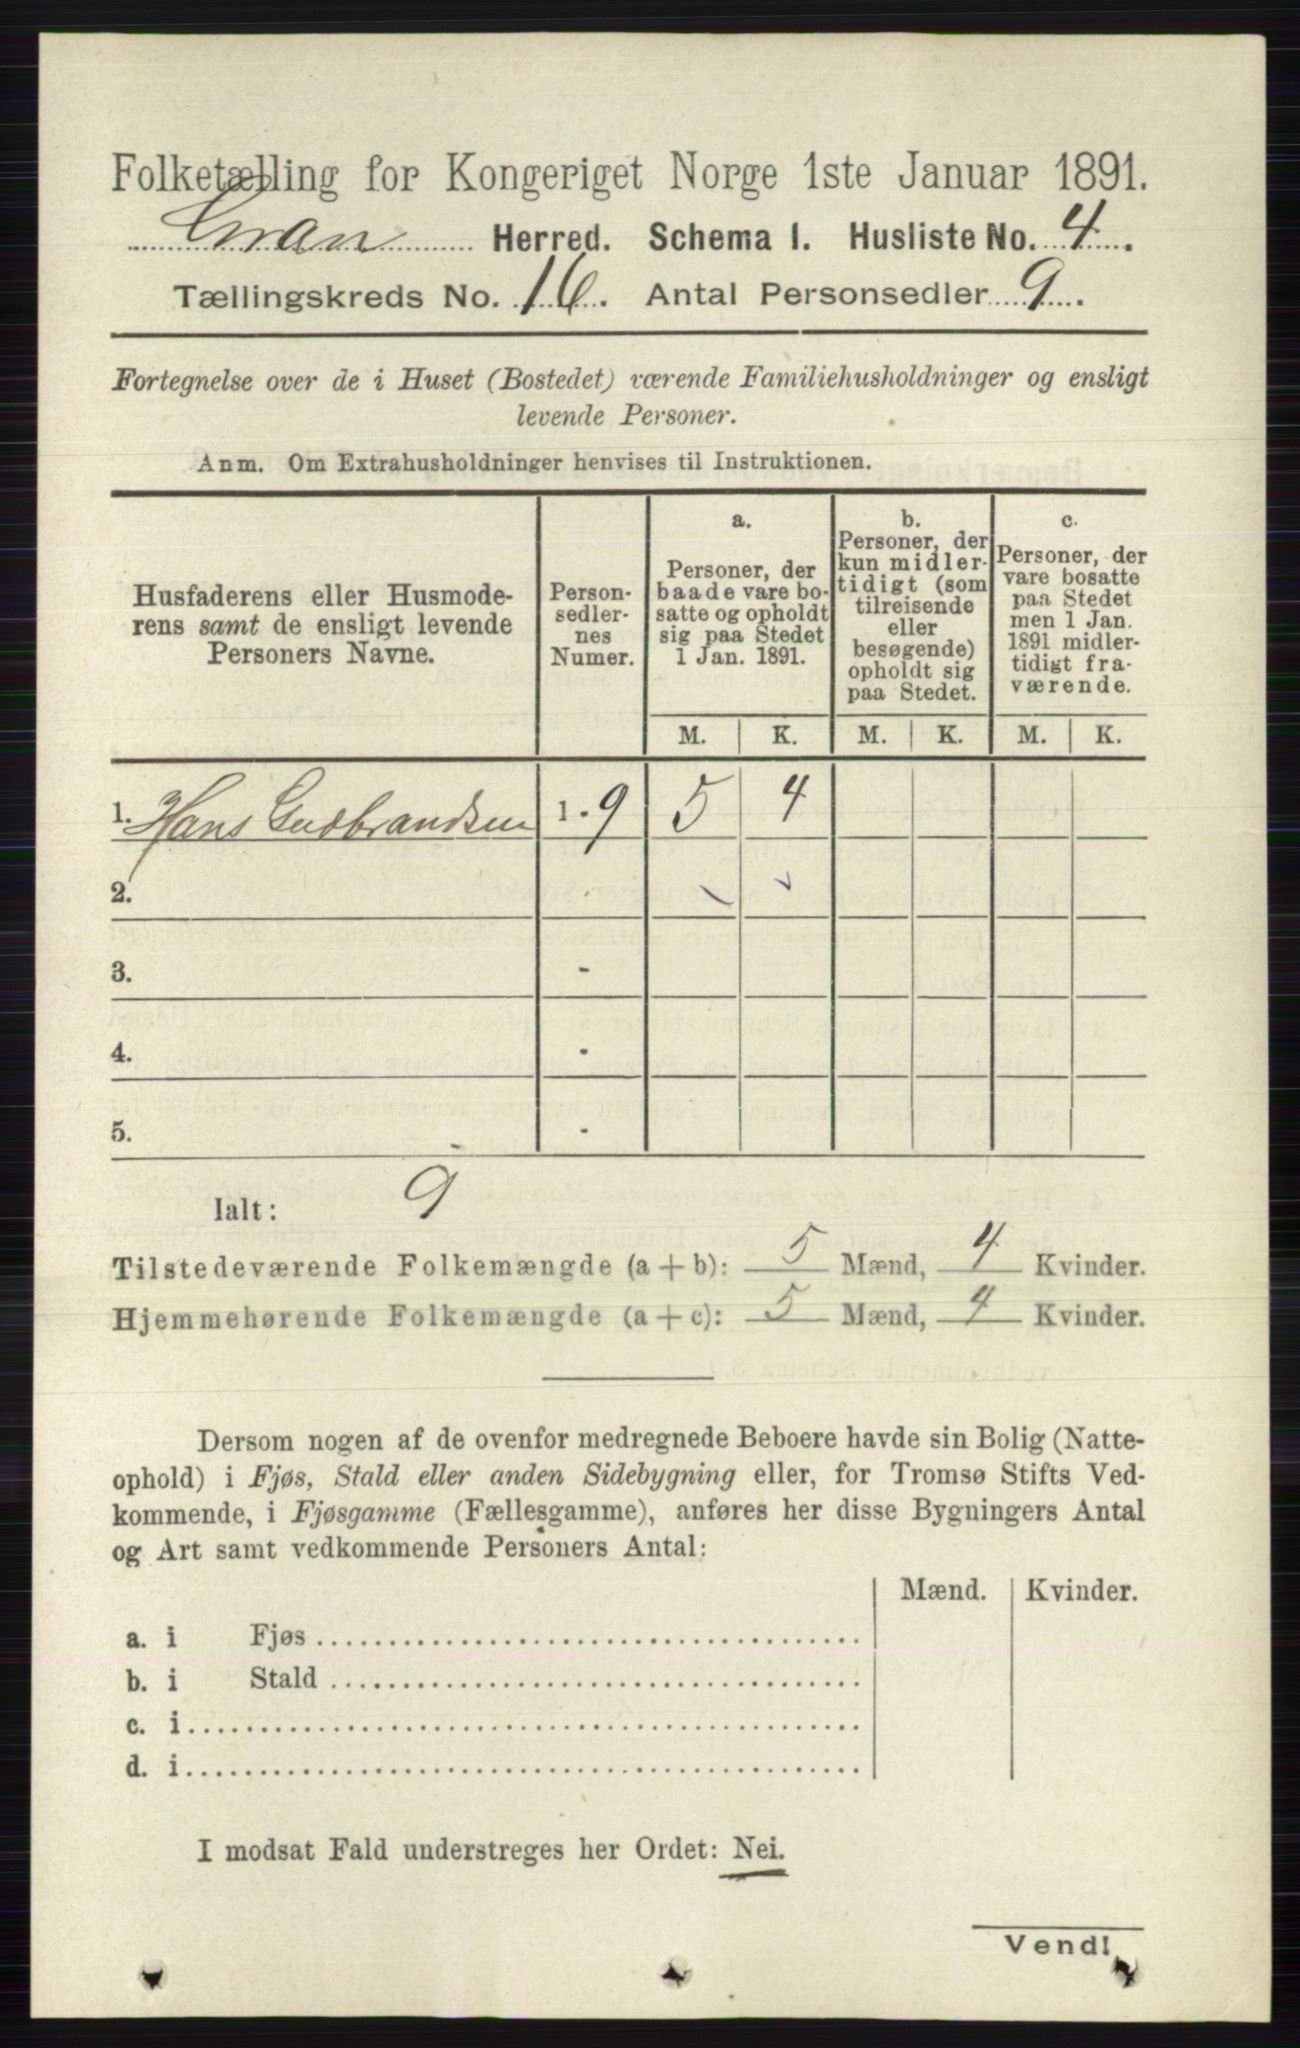 Folketælling for Kongeriget Norge 1ste Januar 1891.
Gran Herred. Schema I. Husliste No. 4.
Tællingskreds No. 16. Antal Personsedler 9.
Fortegnelse over de i Huset (Bostedet) værende Familiehusholdninger og ensligt
levende Personer.
Anm. Om Extrahusholdninger henvises til Instruktionen.
Husfaderens eller Husmode-
rens samt de ensligt levende
Personers Navne.
Person-
sedler-
nes
Numer.
a.
Personer, der
baade vare bo-
satte og opholdt
sig paa Stedet
1 Jan. 1891.
b.
Personer, der
kun midler-
tidigt (som
tilreisende
eller
besøgende)
opholdt sig
paa Stedet.
c.
Personer, der
vare bosatte
paa Stedet
men 1 Jan.
1891 midler-
tidigt fra-
værende.
M. K. M. K. M. K.
1. Hans Gudbrandsen 1-9 5 4
2.
3. -
4. -
5. -
Ialt: 9
Tilstedeværende Folkemængde (a + b): 5 Mænd, 4 Kvinder.
Hjemmehørende Folkemængde (a + c): 5 Mænd, 4 Kvinder.
Dersom nogen af de ovenfor medregnede Beboere havde sin Bolig (Natte-
ophold) i Fjøs, Stald eller anden Sidebygning eller, for Tromsø Stifts Ved-
kommende, i Fjøsgamme (Fællesgamme), anføres her disse Bygningers Antal
og Art samt vedkommende Personers Antal:
Mænd. Kvinder.
a. i Fjøs
b. i Stald
c. i
d. i
I modsat Fald understreges her Ordet: Nei.
Vend!